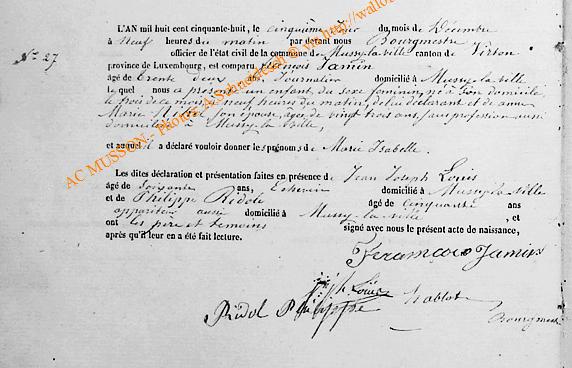 N° 27
L'AN mil huit cent cinquante-huit, le cinquième jour du mois de Décembre
à neuf heures du matin par devant nous Bourgmestre
officier de l'état civil de la commune de Mussy-la-ville canton de Virton
province de Luxembourg, est comparu François Jamin
âgé de trente deux ans, Journalier domicilié à Mussy-la-ville
lequel nous a présenté un enfant du sexe féminin, né à son domicile
le trois de ce mois à neuf heures du matin, de lui déclarant et de
Marie son épouse, agée de vingt trois ans, sans profession aussi
domiciliée à Mussy-la-ville,
et auquel il a déclaré vouloir donner les prénoms de Marie Isabelle.
Les dites déclaration et présentation faites en présence de Jean Joseph Louis
âgé de soixante ans, Echevin domicilié à Mussy-la-ville
et de Philippe Ridole âgé de cinquante ans
appariteur aussi domicilié à Mussy-la-ville, et
ont les père et témoins signé avec nous le présent acte de naissance,
après qu'il leur en a été fait lecture.
François Jamin
Louis
Ridol Philippe
Bourgmestre
AC MUSSON - Photo : A.Schneidesch © via http://wallo